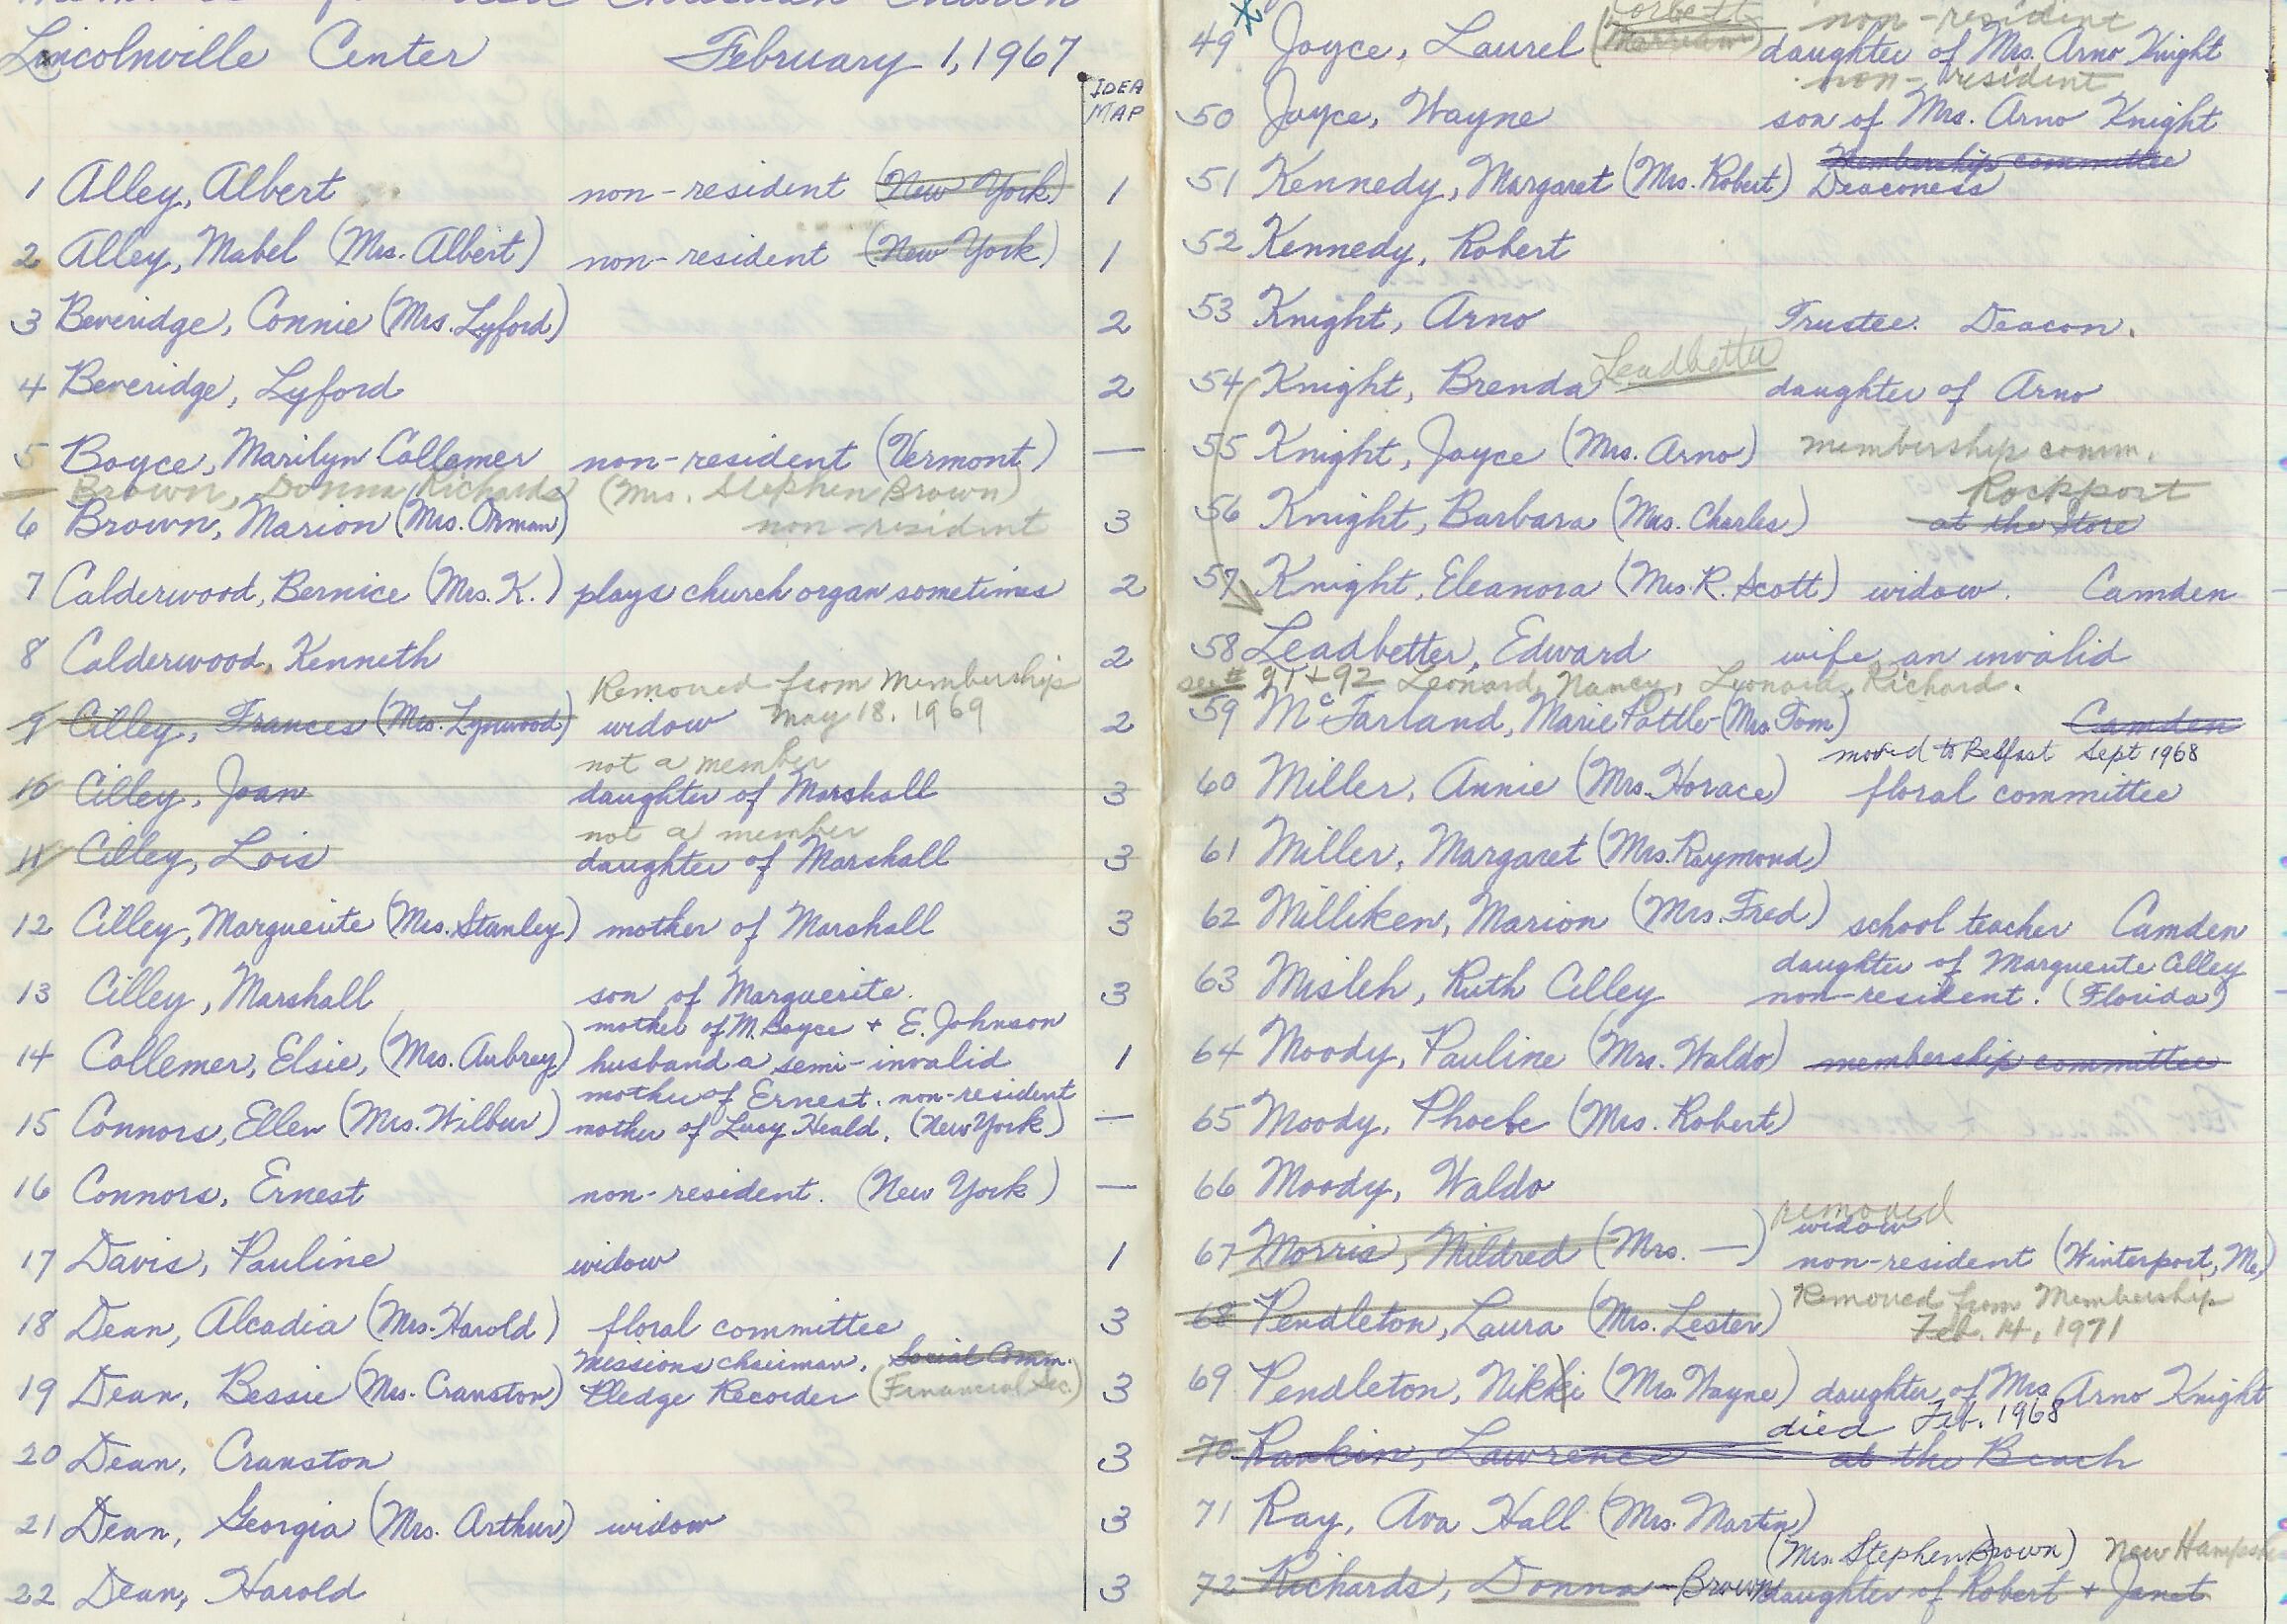 Christian Church
Lincolnville Center February 1, 1967
IDEA MAP
1 Alley, Albert non-resident (New York) 1
2 Alley, Mabel (Mrs. Albert) non-resident (New York) 1
3 Beveridge, Connie (Mrs. Lyford) 2
4 Beveridge, Lyford 2
5 Boyce, Marilyn Collemer non-resident (Vermont) —
Brown, Donna Richards (Mrs. Stephen Brown)
non-resident
6 Brown, Marion (Mrs. Orman) 3
7 Calderwood, Bernice (Mrs. K.) plays church organ sometimes 2
8 Calderwood, Kenneth 2
Removed from Membership
9 Cilley, Frances (Mrs. Lynwood) widow May 18, 1969 2
not a member
10 Cilley, Joan daughter of Marshall 3
not a member
11 Cilley, Lois daughter of Marshall 3
12 Cilley, Marguerite (Mrs. Stanley) mother of Marshall 3
13 Cilley, Marshall son of Marguerite. 3
mother of M. Boyce + E. Johnson
14 Collemer, Elsie, (Mrs. Aubrey) husband a semi-invalid 1
mother of Ernest. non-resident
15 Connors, Ellen (Mrs. Wilbur) mother of Lucy Heald. (New York) —
16 Connors, Ernest non-resident. (New York) —
17 Davis, Pauline widow 1
18 Dean, Alcadia (Mrs. Harold) floral committee 3
Missions chairman, Social Comm.
19 Dean, Bessie (Mrs. Cranston) Pledge Recorder (Financial Sec.) 3
20 Dean, Cranston 3
21 Dean, Georgia (Mrs. Arthur) widow 3
22 Dean, Harold 3
Corbett non-resident
49 Joyce, Laurel daughter of Mrs. Arno Knight
non-resident
50 Joyce, Wayne son of Mrs. Arno Knight
Membership committee
51 Kennedy, Margaret (Mrs. Robert) Deaconess
52 Kennedy, Robert
53 Knight, Arno Trustee. Deacon.
54 Knight, Brenda Leadbetter daughter of Arno
55 Knight, Joyce (Mrs. Arno) membership comm.
Rockport
56 Knight, Barbara (Mrs. Charles) at the Store
57 Knight, Eleanora (Mrs. R. Scott) widow. Camden
58 Leadbetter, Edward wife an invalid
see # 91 + 92 Leonard, Nancy, Leonard, Richard.
59 McFarland, Marie Pottle (Mrs. Tom) Camden
moved to Belfast Sept 1968
60 Miller, Annie (Mrs. Horace) floral committee
61 Miller, Margaret (Mrs. Raymond)
62 Milliken, Marion (Mrs. Fred) school teacher Camden
daughter of Marguerite Cilley
63 Misleh, Ruth Cilley non-resident. (Florida)
64 Moody, Pauline (Mrs. Waldo) membership committee
65 Moody, Phoebe (Mrs. Robert)
66 Moody, Waldo
removed
widow
67 Morris, Mildred (Mrs. —) non-resident (Winterport, Me.)
68 Pendleton, Laura (Mrs. Lester) Removed from Membership
Feb. 14, 1971
69 Pendleton, Nikki (Mrs. Wayne) daughter of Mrs. Arno Knight
died Feb. 1968
70 Rankin, Lawrence at the Beach
71 Ray, Ava Hall (Mrs. Martin)
(Mrs. Stephen Brown) New Hampshire
72 Richards, Donna - Brown daughter of Robert + Janet